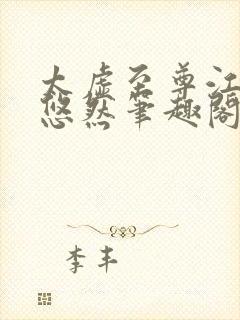 太虚至尊江
悠然笔趣阁
李丰